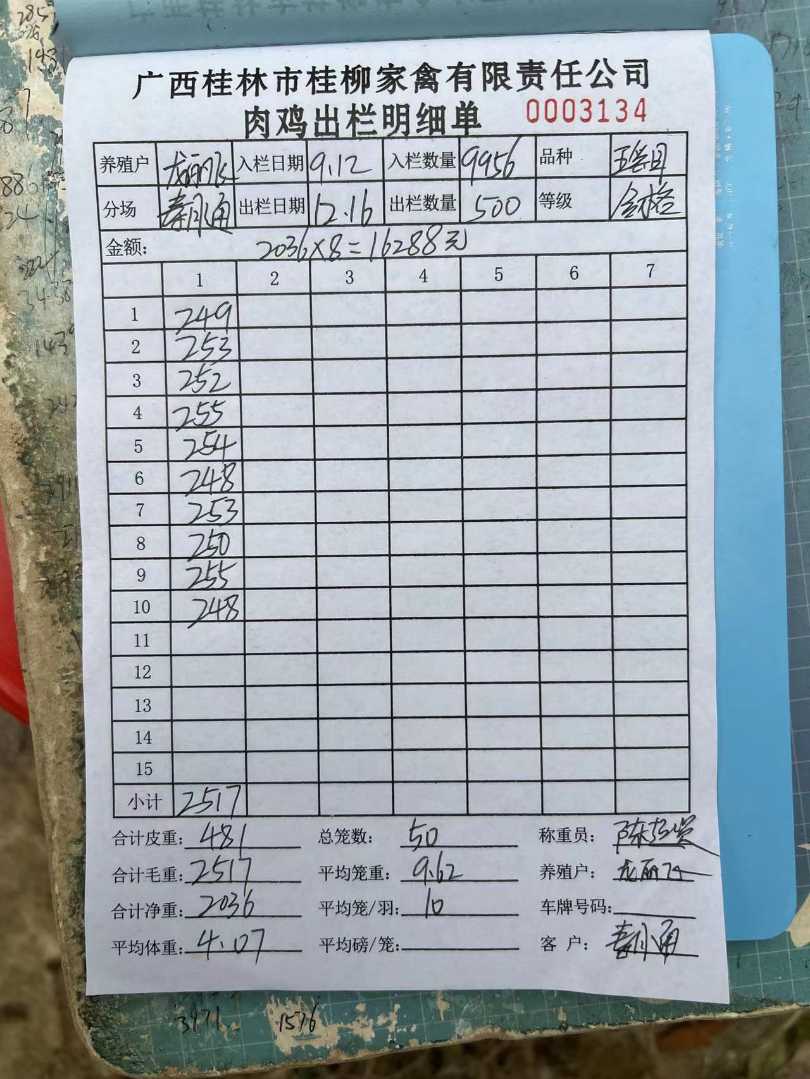 广西桂林市桂柳家禽有限责任公司
肉鸡出栏明细单 0003134
养殖户 入栏日期 9.12 入栏数量 9956 品种
分场 出栏日期 12.16 出栏数量 500 等级 合格
金额: 2036×8=16288元
1 2 3 4 5 6 7
1 249
2 253
3 252
4 255
5 254
6 248
7 253
8 250
9 255
10 248
11
12
13
14
15
小计 2517
合计皮重: 481 总笼数: 50 称重员:
合计毛重: 2517 平均笼重: 9.62 养殖户:
合计净重: 2036 平均笼/羽: 10 车牌号码:
平均体重: 4.07 平均磅/笼: 客 户:
1576